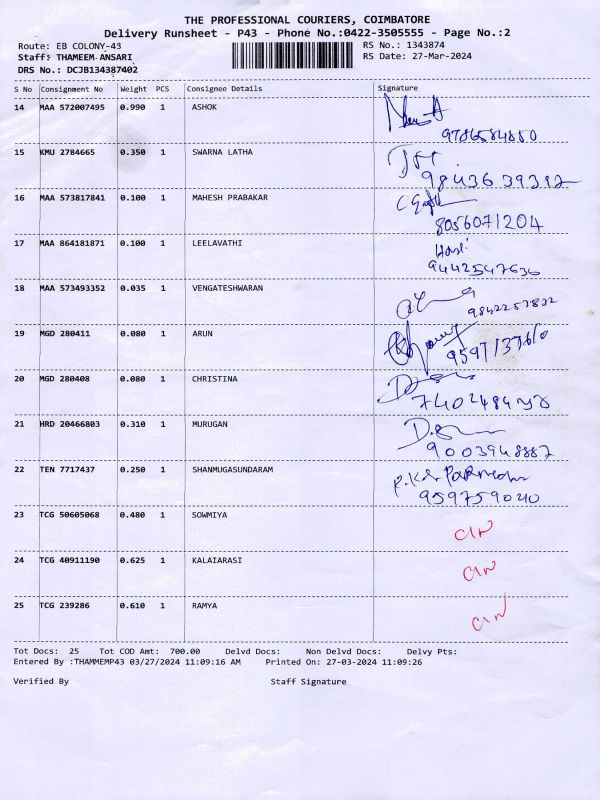 THE PROFESSIONAL COURIERS, COIMBATORE
Delivery Runsheet - P43 - Phone No.:0422-3505555 - Page No.:2
Route: EB COLONY-43 RS No.: 1343874
Staff: THAMEEM ANSARI RS Date: 27-Mar-2024
DRS No.: DCJB134387402
S No Consignment No Weight PCS Consignee Details Signature
14 MAA 572007495 0.990 1 ASHOK
9786584850
15 KMU 2784665 0.350 1 SWARNA LATHA
9843639312
16 MAA 573817841 0.100 1 MAHESH PRABAKAR
8056071204
17 MAA 864181871 0.100 1 LEELAVATHI
9442547636
18 MAA 573493352 0.035 1 VENGATESHWARAN
9842253832
19 MGD 280411 0.080 1 ARUN
20 MGD 280408 0.080 1 CHRISTINA
21 HRD 20466803 0.310 1 MURUGAN
9003948887
22 TEN 7717437 0.250 1 SHANMUGASUNDARAM
959759020
23 TCG 50605068 0.480 1 SOWMIYA
24 TCG 40911190 0.625 1 KALAIARASI
25 TCG 239286 0.610 1 RAMYA
Tot Docs: 25 Tot COD Amt: 700.00 Delvd Docs: Non Delvd Docs: Delvy Pts:
Entered By :THAMMEMP43 03/27/2024 11:09:16 AM Printed On: 27-03-2024 11:09:26
Verified By Staff Signature